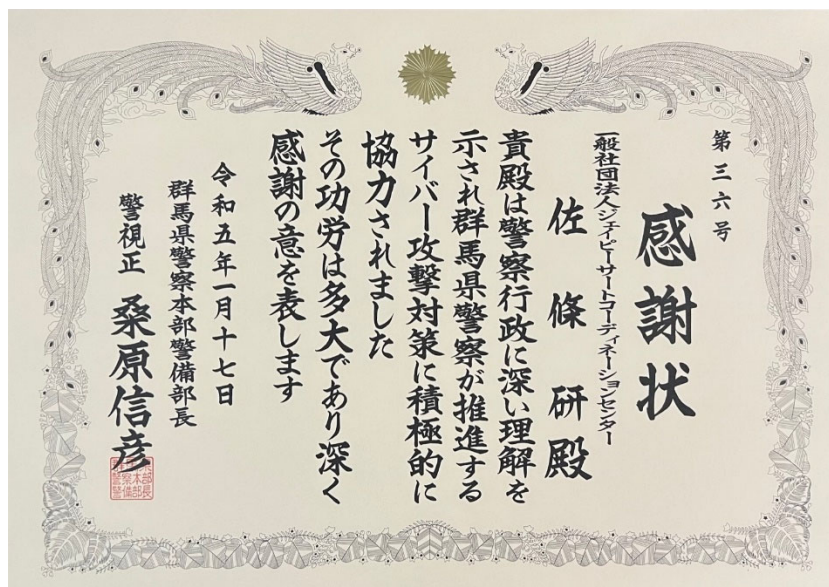 第三六号
感謝状
一般社団法人ジェイピーサートコーディネーションセンター
佐條研殿
貴殿は警察行政に深い理解を
示され群馬県警察が推進する
サイバー攻撃対策に積極的に
協力されました
その功労は多大であり深く
感謝の意を表します
令和五年一月十七日
群馬県警察本部警備部長
警視正 桑原信彦